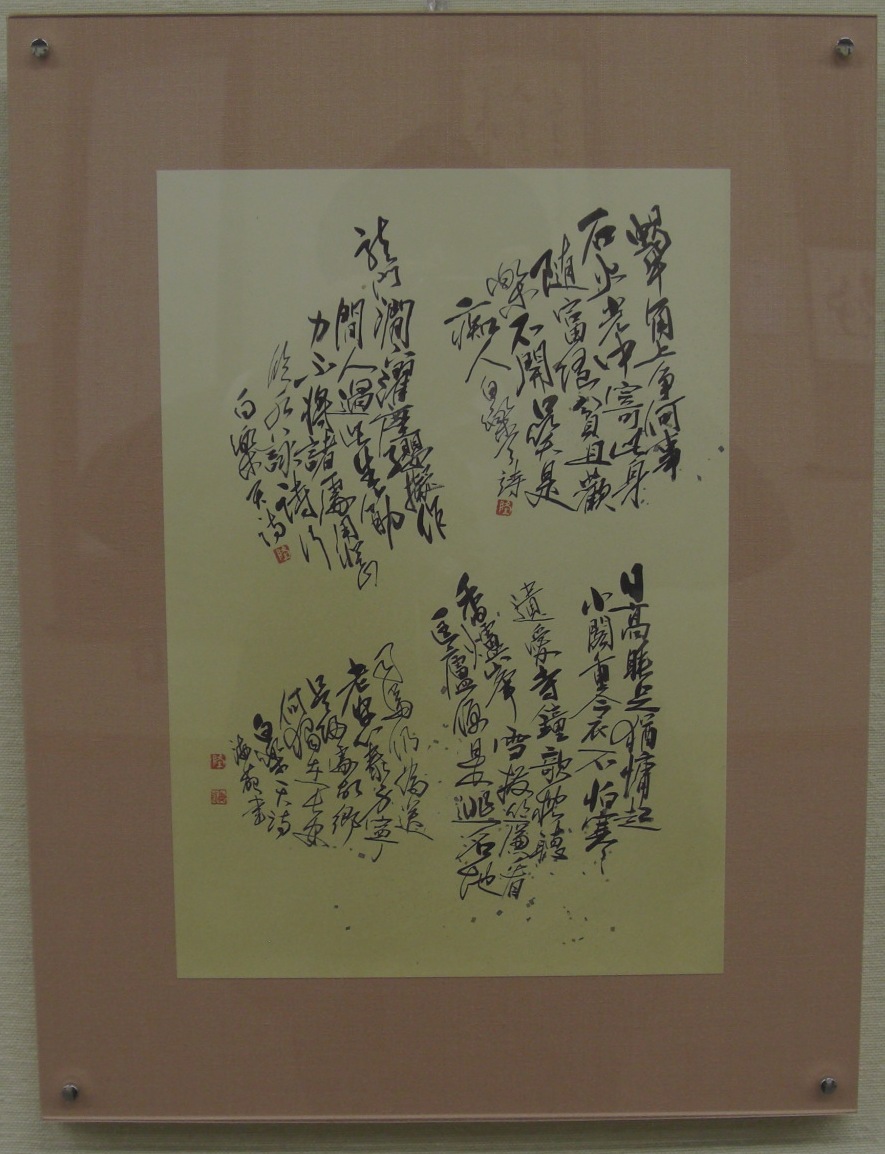 蝸牛角上争何事
石火光中寄此身
随富随貧且歡
樂不開口笑是
痴人 白樂天詩
龍門澗下濯塵纓擬作
間人過此生筋
力不將諸處用登山
臨水詠詩行
白樂天詩
日高睡足猶慵起
小閣重衾不怕寒
遺愛寺鐘欹枕聽
香爐峯雪撥簾看
匡廬便是逃名地
司馬仍為送
老官心泰身寧
是歸處故鄉
何獨在長安
白樂天詩